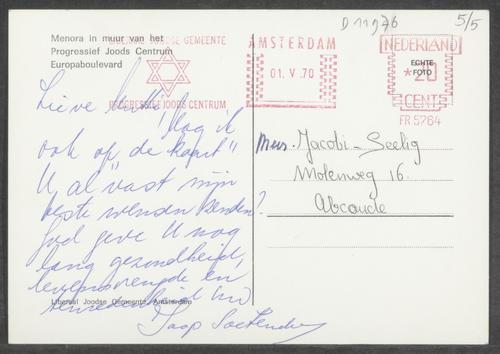 D11976
5/5
Menora in muur van het
Progressief Joods Centrum
Europaboulevard
LIBERAAL JOODSE GEMEENTE
PROGRESSIEF JOODS CENTRUM
AMSTERDAM
01. V. 70
NEDERLAND
*20
CENT
FR 5764
ECHTE
FOTO
Lieve
Mag ik
ook op „de kaart"
U al vast mijn
beste wensen zenden?
God geve U nog
lang gezondheid,
levensvreugde en
Jaap Soetendorp
Mevr. Jacobi-Seelig
Molenweg 16.
Abcoude
Liberaal Joodse Gemeente Amsterdam